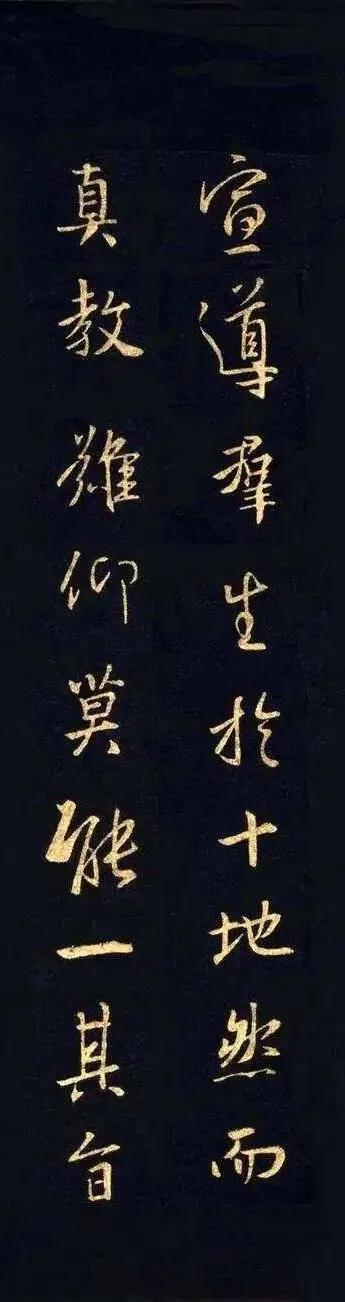 宣導羣生於十地然而
真教難仰莫能一其旨